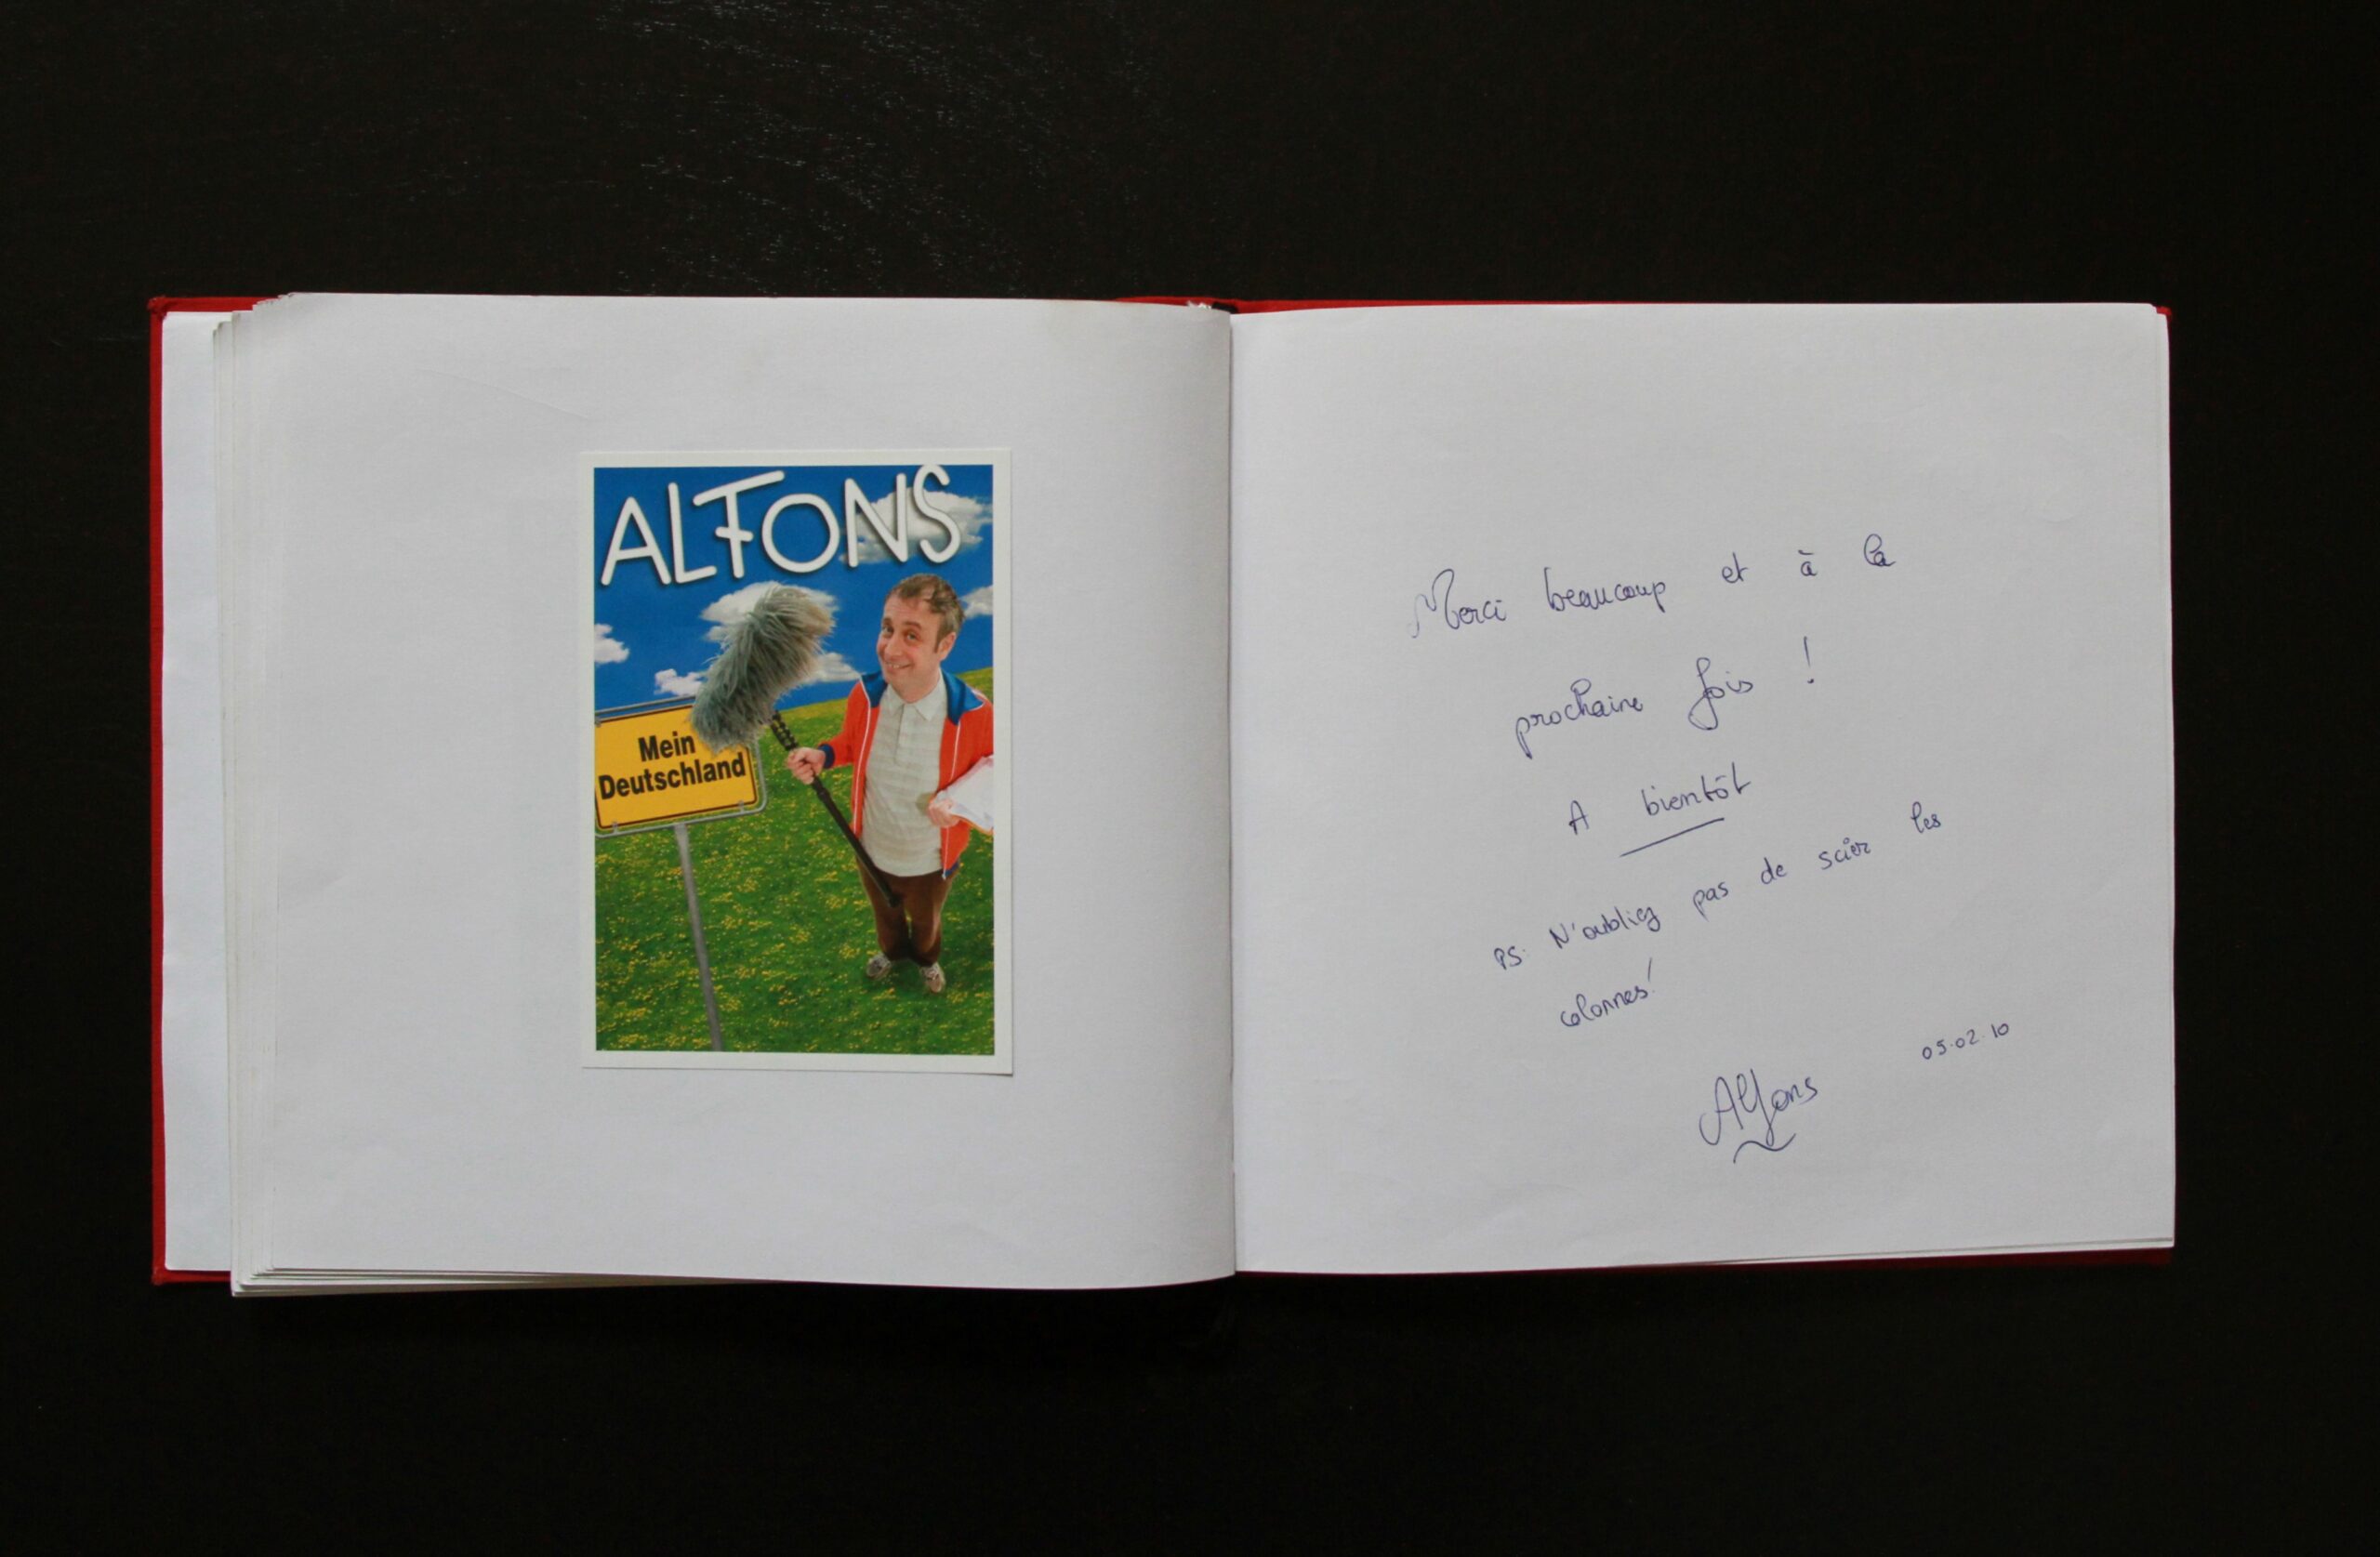 ALFONS
Mein
Deutschland
Merci beaucoup et à la
prochaine fois !
A bientôt
PS: N'oubliez pas de scier les
colonnes!
05.02.10
Alfons